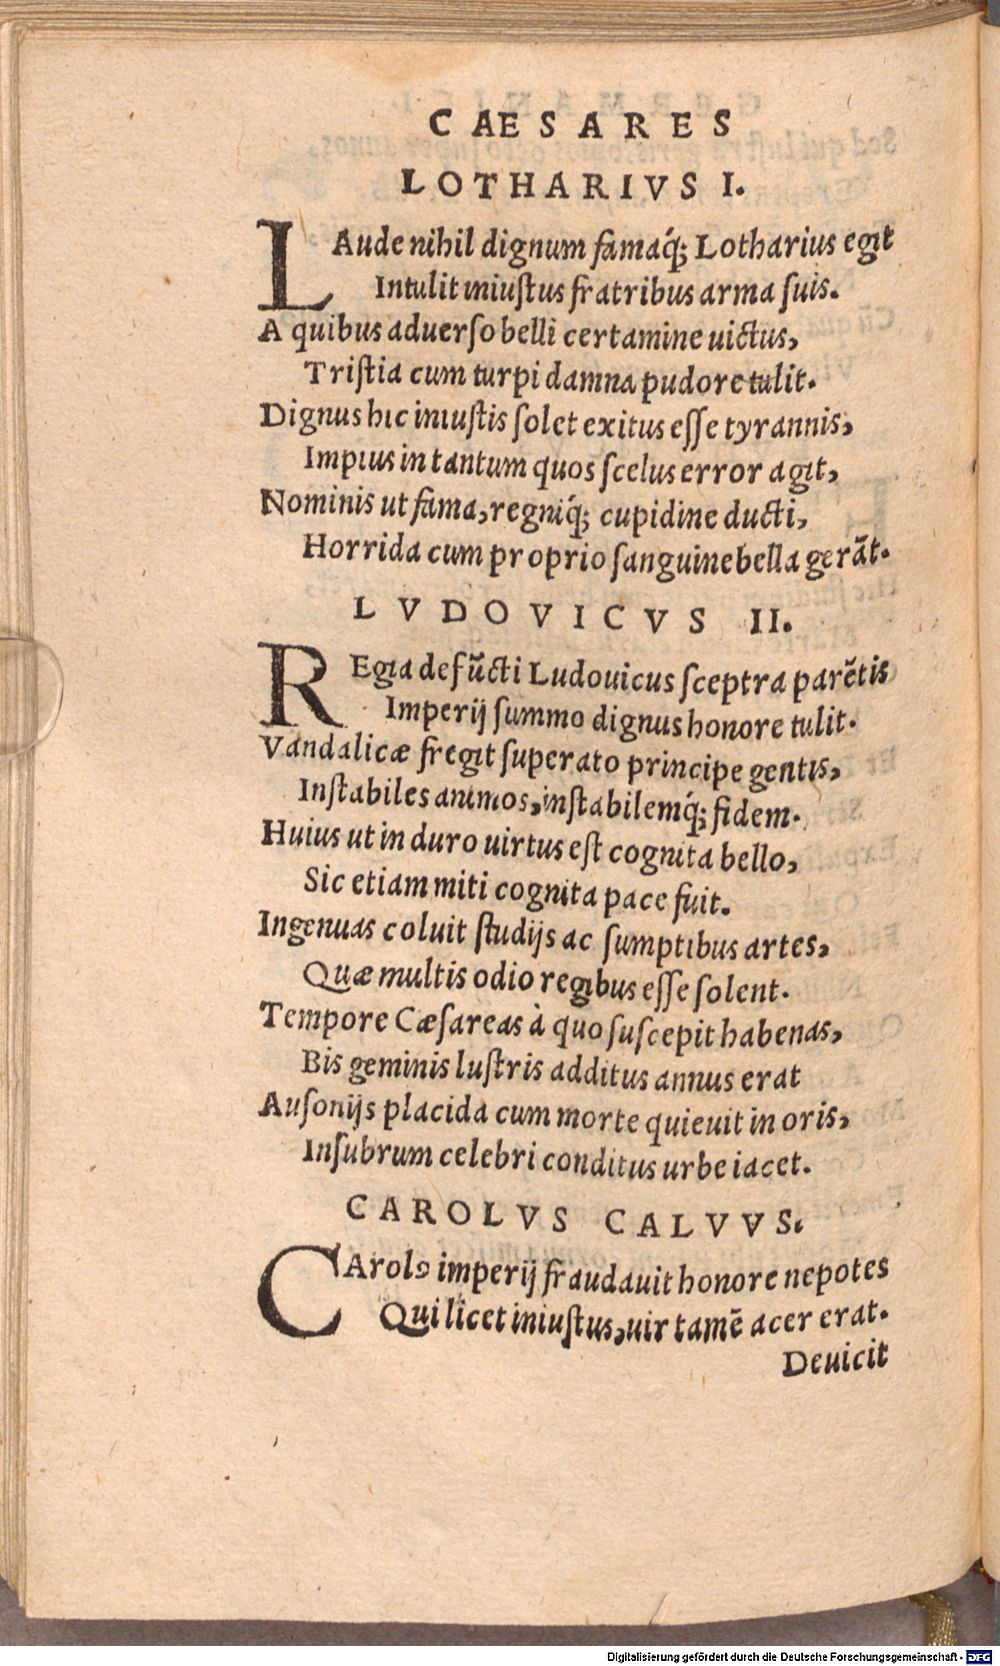 CAESARES
LOTHARIVS I.
LAude nihil dignum famaq́; Lotharius egit
Intulit iniuſtus fratribus arma ſuis.
A quibus aduerſo belli certamine uictus,
Triſtia cum turpi damna pudore tulit.
Dignus hic iniuſtis ſolet exitus eſſe tyrannis,
Impius in tantum quos ſcelus error agit,
Nominis ut fama, regniq́; cupidine ducti,
Horrida cum proprio ſanguine bella gerãt.
LVDOVICVS II.
REgia defũcti Ludouicus ſceptra parẽtis
Imperij ſummo dignus honore tulit.
Vandalicæ fregit ſuperato principe gentis,
Inſtabiles animos, inſtabilemq́; fidem.
Huius ut in duro uirtus eſt cognita bello,
Sic etiam miti cognita pace fuit.
Ingenuas coluit ſtudijs ac ſumptibus artes,
Quæ multis odio regibus eſſe ſolent.
Tempore Cæſareas à quo ſuſcepit habenas,
Bis geminis luſtris additus annus erat
Auſonijs placida cum morte quieuit in oris,
Inſubrum celebri conditus urbe iacet.
CAROLVS CALVVS.
CArolo imperij fraudauit honore nepotes
Qui licet iniuſtus, uir tamẽ acer erat.
Deuicit
Digitalisierung gefördert durch die Deutsche Forschungsgemeinschaft - DFG